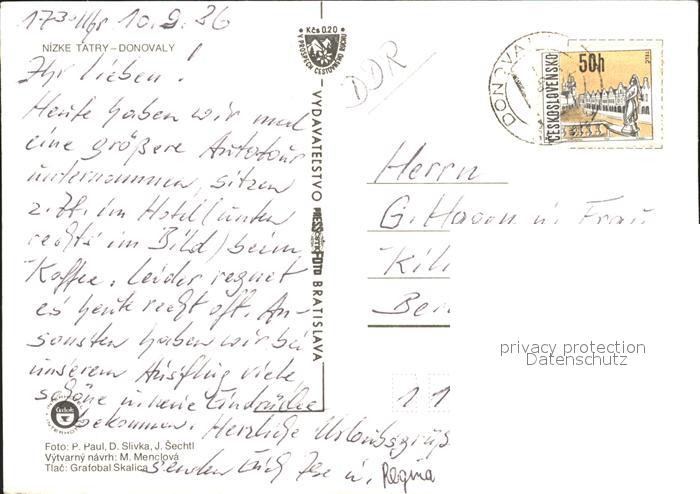 17³⁰ Uhr 10.9.86
NÍZKE TATRY–DONOVALY
Ihr lieben!
Heute haben wir mal
eine größere Autotour
unternommen, sitzen
z.Zt. im Hotel (unten
rechts im Bild) beim
Kaffee. Leider regnet
es heute recht oft. An-
sonsten haben wir bei
unserem Ausflug viele
schöne neue Eindrücke
bekommen. Herzliche Urlaubsgrüße
senden Euch u. Regina
Foto: P. Paul, D. Slivka, J. Šechtl
Výtvarný návrh: M. Menclová
Tlač: Grafobal Skalica
Kčs 0.20
V PROSPECH CESTOVNÉHO RUCHU
VYDAVATEĽSTVO PRESSFOTO BRATISLAVA
DDR
DONOVA
ČESKOSLOVENSKO
50h
TELČ
Herrn
G. u. Frau
11
privacy protection
Datenschutz